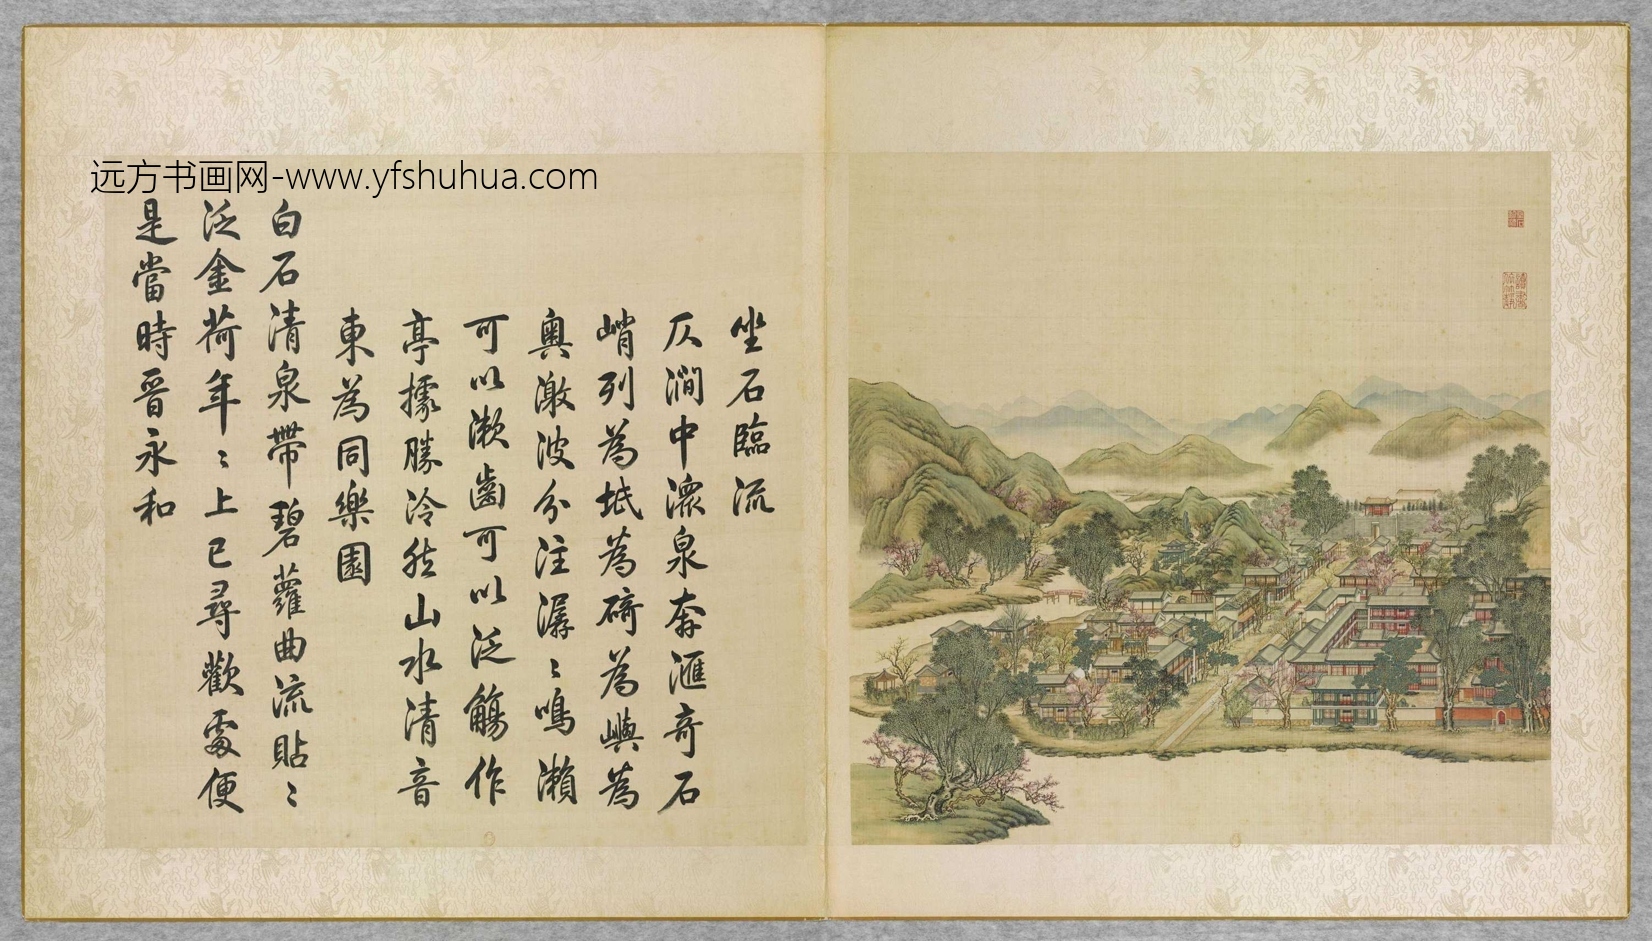 远方书画网-www.yfshuhua.com
坐石臨流
仄澗中瀠泉奔滙奇石
峭列為坻為碕為嶼為
奧激波分注潺〻鳴瀨
可以漱齒可以泛觴作
亭據勝泠然山水清音
東為同樂園
白石清泉帶碧蘿曲流貼〻
泛金荷年〻上巳尋歡處便
是當時晉永和